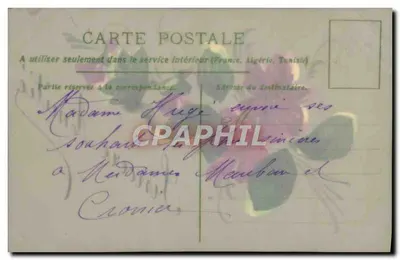 CARTE POSTALE
A utiliser seulement dans le service intérieur (France, Algérie, Tunisie)
Partie réservée à la correspondance. Adresse du destinataire.
Madame Hugé envoie ses
souhaits
CPARPHIL
à Mesdames et
Cronier